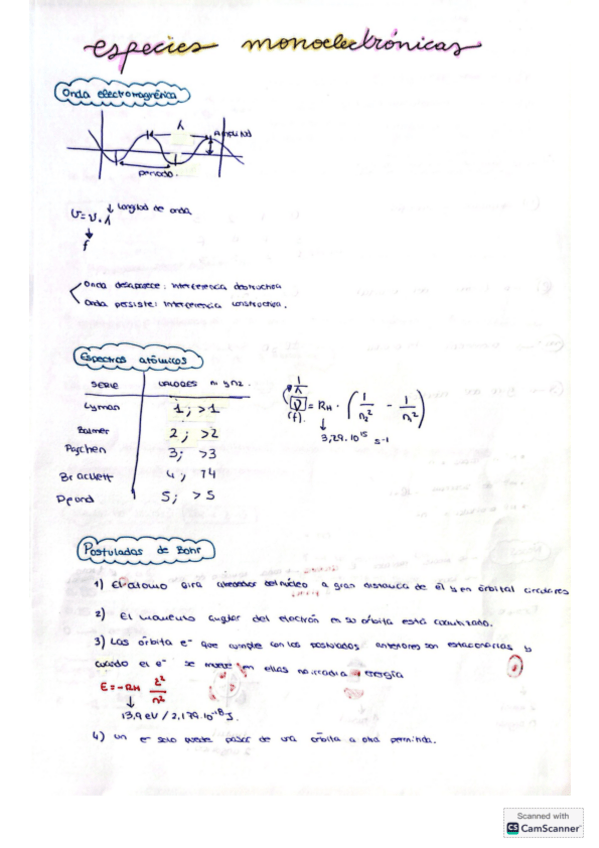 especies monoelectrónicas
Onda electromagnética
λ
Amplitud
periodo.
↓ Longitud de onda
v = ν · λ
↓
f
Onda desaparece: interferencia destructiva
Onda persiste: interferencia constructiva.
Espectros atómicos
SERIE VALORES n1 y n2.
Lyman 1; >1
Balmer 2; >2
Paschen 3; >3
Brackett 4; 74
Pfond 5; >5
1/λ
ν = RH · (1/n2² - 1/n1²)
(f).
↓
3,29·10¹⁵ s-1
Postulados de Bohr
1) El átomo gira alrededor del núcleo a gran distancia de él y en órbital circulares
2) El momento angular del electrón en su órbita está cuantizado.
3) Las órbita e⁻ que cumple con los postulados anteriores son estacionarias y
cuando el e⁻ se mueve en ellas no irradia energía
E = - RH Z²/n²
↓
13,9 eV / 2,179·10⁻¹⁸ J.
4) un e⁻ solo puede pasar de una órbita a otra permitida.
Scanned with
CS CamScanner